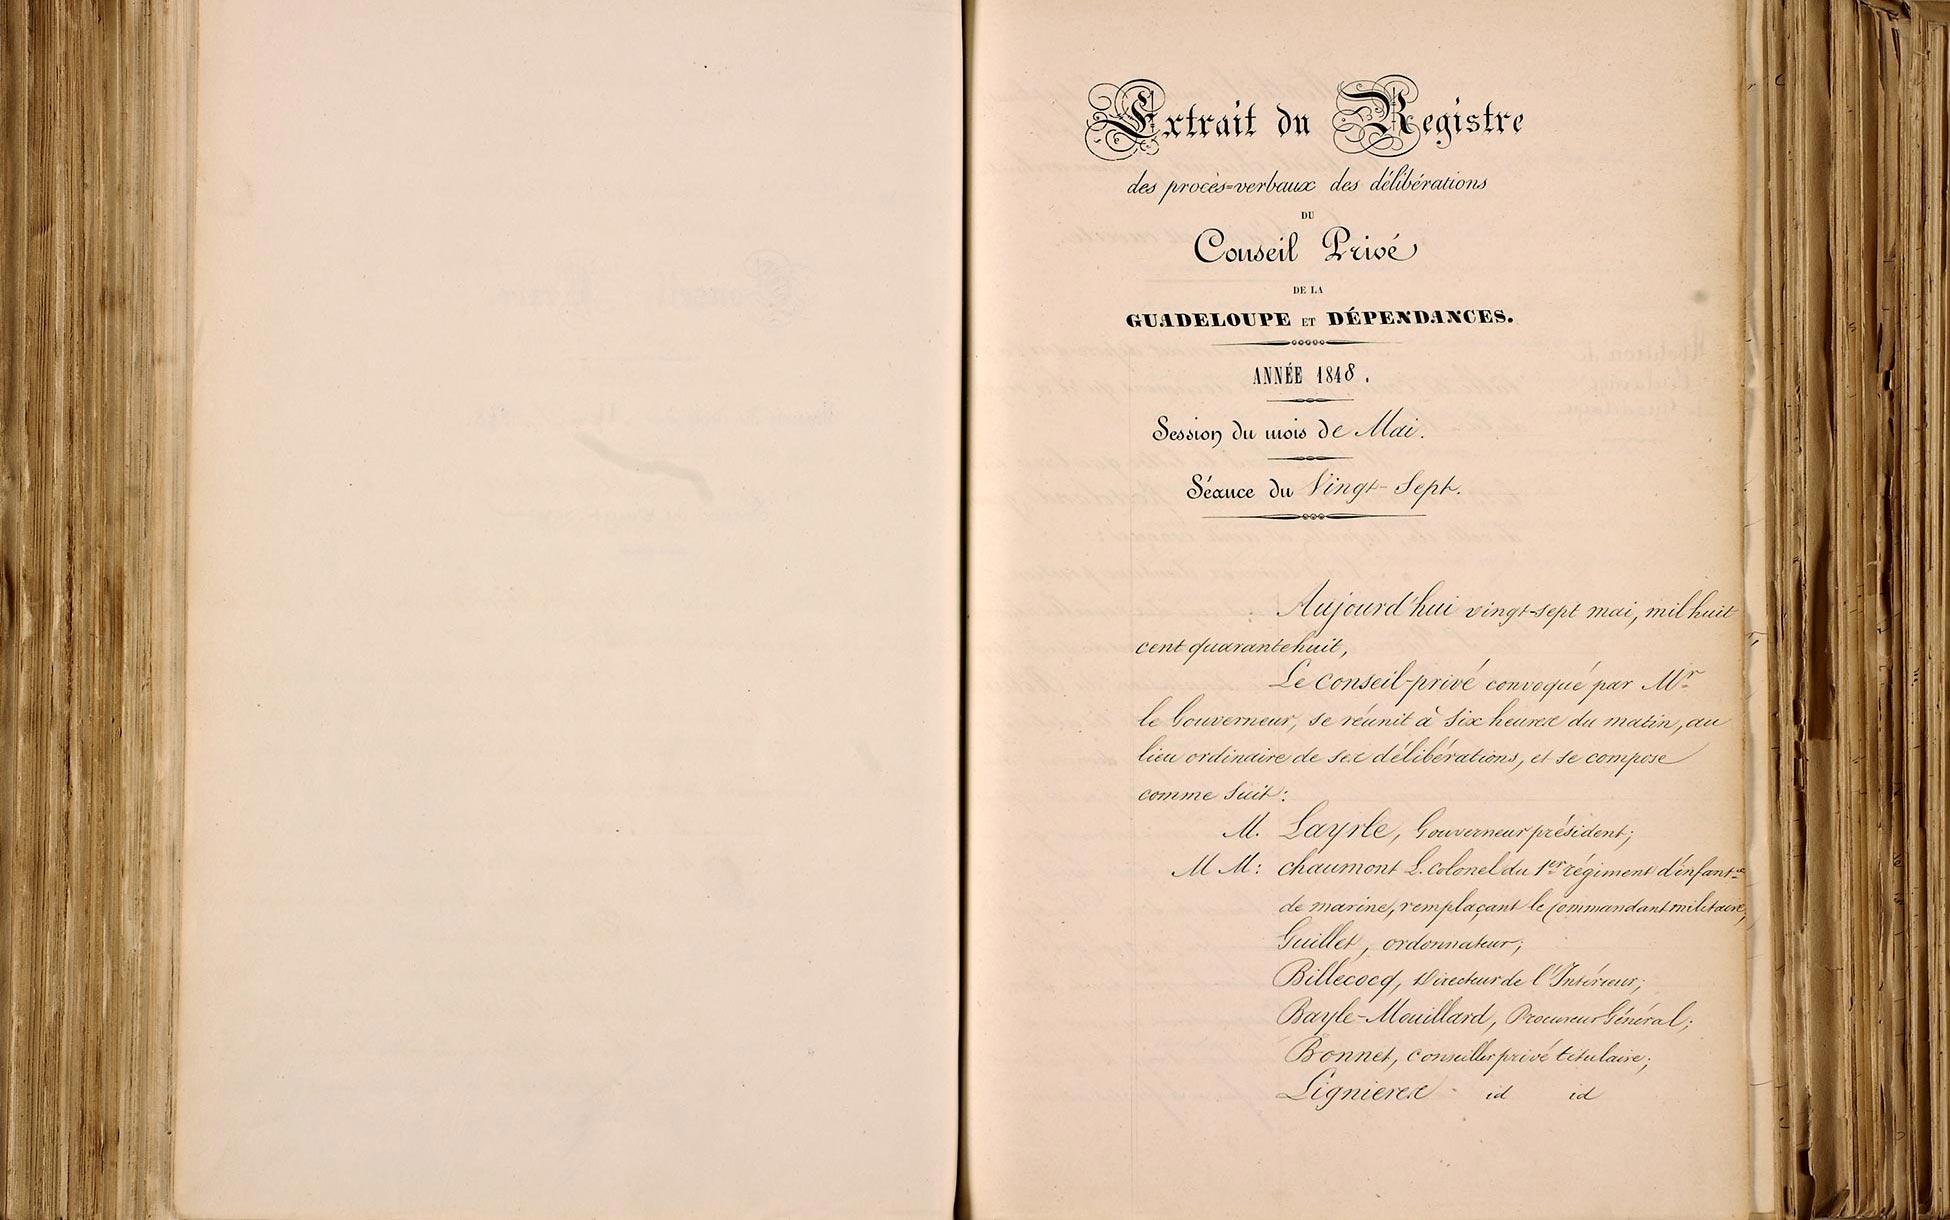 Extrait du Registre
des procès=verbaux des délibérations
DU
Conseil Privé
DE LA
GUADELOUPE ET DÉPENDANCES.
ANNÉE 1848.
Session du mois de Mai.
Séance du Vingt-Sept.
Aujourd'hui vingt-sept mai, mil huit
cent quarante huit,
Le Conseil-privé convoqué par Mr
le Gouverneur, se réunit à six heures du matin, au
lieu ordinaire de ses délibérations, et se compose
comme suit:
M. Layrle, Gouverneur président;
M M: Chaumont L. Colonel du 1er régiment d'infantie
de marine, remplaçant le Commandant militaire;
Guillet, ordonnateur;
Billecocq, Directeur de l'Intérieur;
Bayle-Mouillard, Procureur Général;
Bonnet, conseiller privé titulaire;
Lignieres - id id